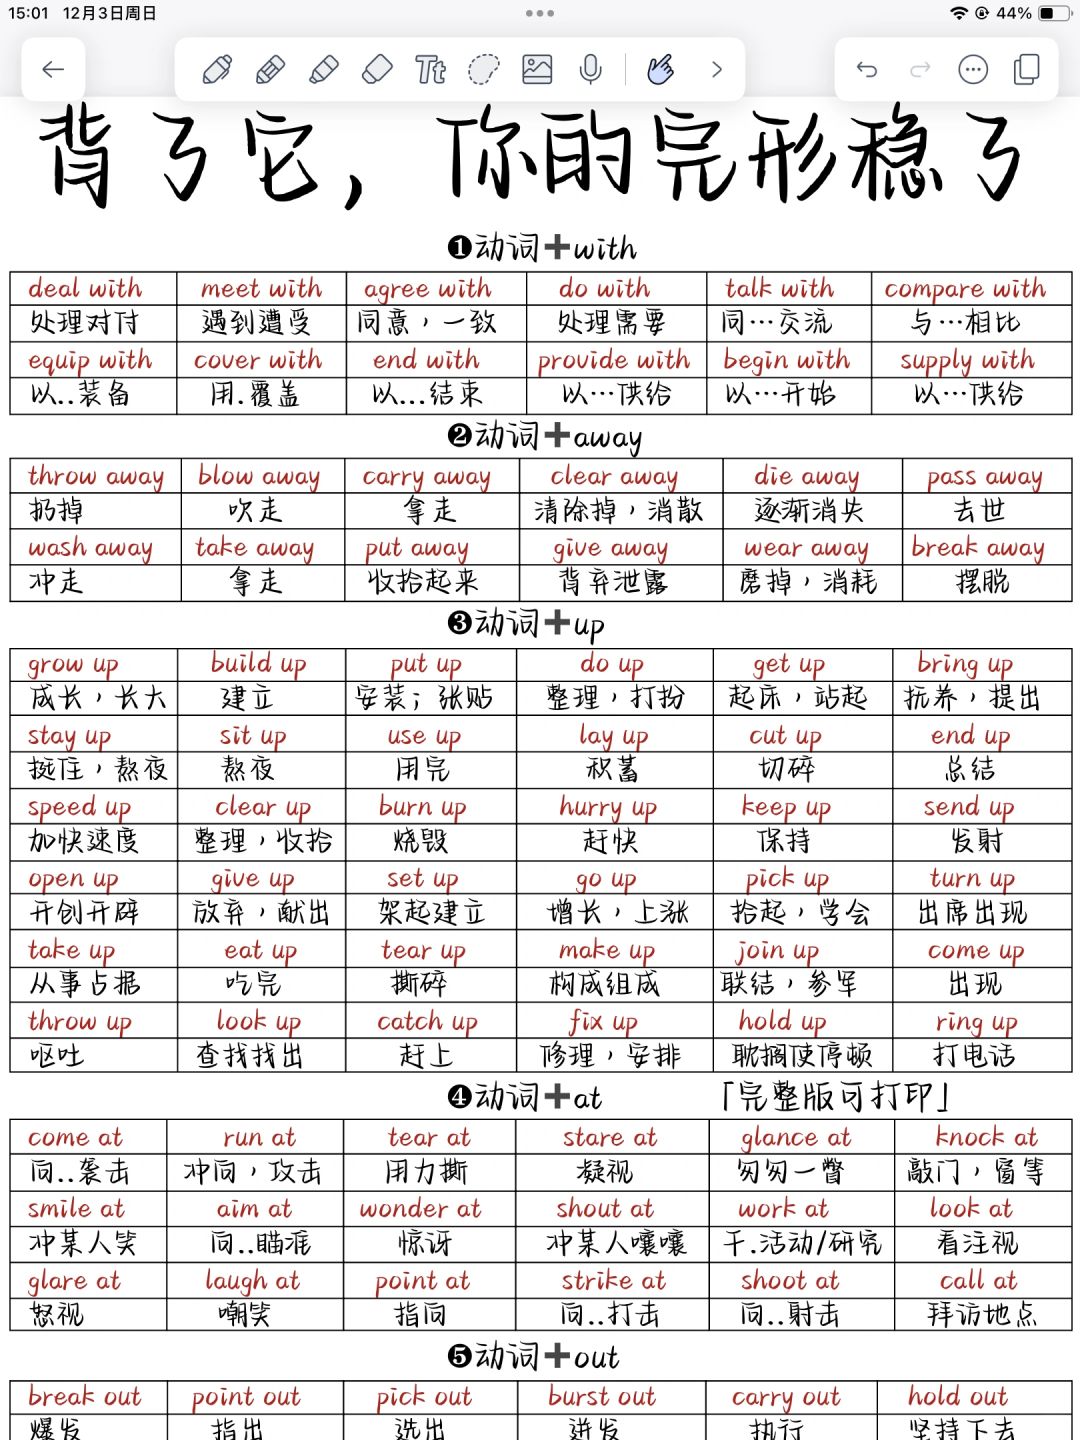 15:01 12月3日周日
44%
Tt
背了它，你的完形稳了
❶动词➕with
deal with meet with agree with do with talk with compare with
处理对付 遇到遭受 同意，一致 处理需要 同…交流 与…相比
equip with cover with end with provide with begin with supply with
以..装备 用.覆盖 以...结束 以…供给 以…开始 以…供给
❷动词➕away
throw away blow away carry away clear away die away pass away
扔掉 吹走 拿走 清除掉，消散 逐渐消失 去世
wash away take away put away give away wear away break away
冲走 拿走 收拾起来 背弃泄露 磨掉，消耗 摆脱
❸动词➕up
grow up build up put up do up get up bring up
成长，长大 建立 安装；张贴 整理，打扮 起床，站起 抚养，提出
stay up sit up use up lay up cut up end up
挺住，熬夜 熬夜 用完 积蓄 切碎 总结
speed up clear up burn up hurry up keep up send up
加快速度 整理，收拾 烧毁 赶快 保持 发射
open up give up set up go up pick up turn up
开创开辟 放弃，献出 架起建立 增长，上涨 拾起，学会 出席出现
take up eat up tear up make up join up come up
从事占据 吃完 撕碎 构成组成 联结，参军 出现
throw up look up catch up fix up hold up ring up
呕吐 查找找出 赶上 修理，安排 耽搁使停顿 打电话
❹动词➕at 「完整版可打印」
come at run at tear at stare at glance at knock at
向..袭击 冲向，攻击 用力撕 凝视 匆匆一瞥 敲门，窗等
smile at aim at wonder at shout at work at look at
冲某人笑 向..瞄准 惊讶 冲某人嚷嚷 干.活动/研究 看注视
glare at laugh at point at strike at shoot at call at
怒视 嘲笑 指向 向..打击 向..射击 拜访地点
❺动词➕out
break out point out pick out burst out carry out hold out
爆发 指出 选出 迸发 执行 坚持下去